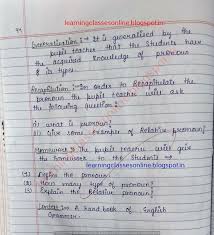 learningclassesonline.blogspot.in
Generalisation :- It is generalised by the
pupil teacher that the students have
the acquired knowledge of pronoun
& its types.
Recapitulation :- In order to Recapitulate the
pronoun the pupil teacher will ask
the following question :-
(i) what is pronoun?
(ii) Give some example of Relative pronoun?
Homework :- The pupil teacher will give
the homework to the students →
learningclassesonline.blogspot.in
(1) Define the pronoun.
(2) How many type of pronoun?
(3) Explain the Relative pronoun?
A hand book of English
Grammar.